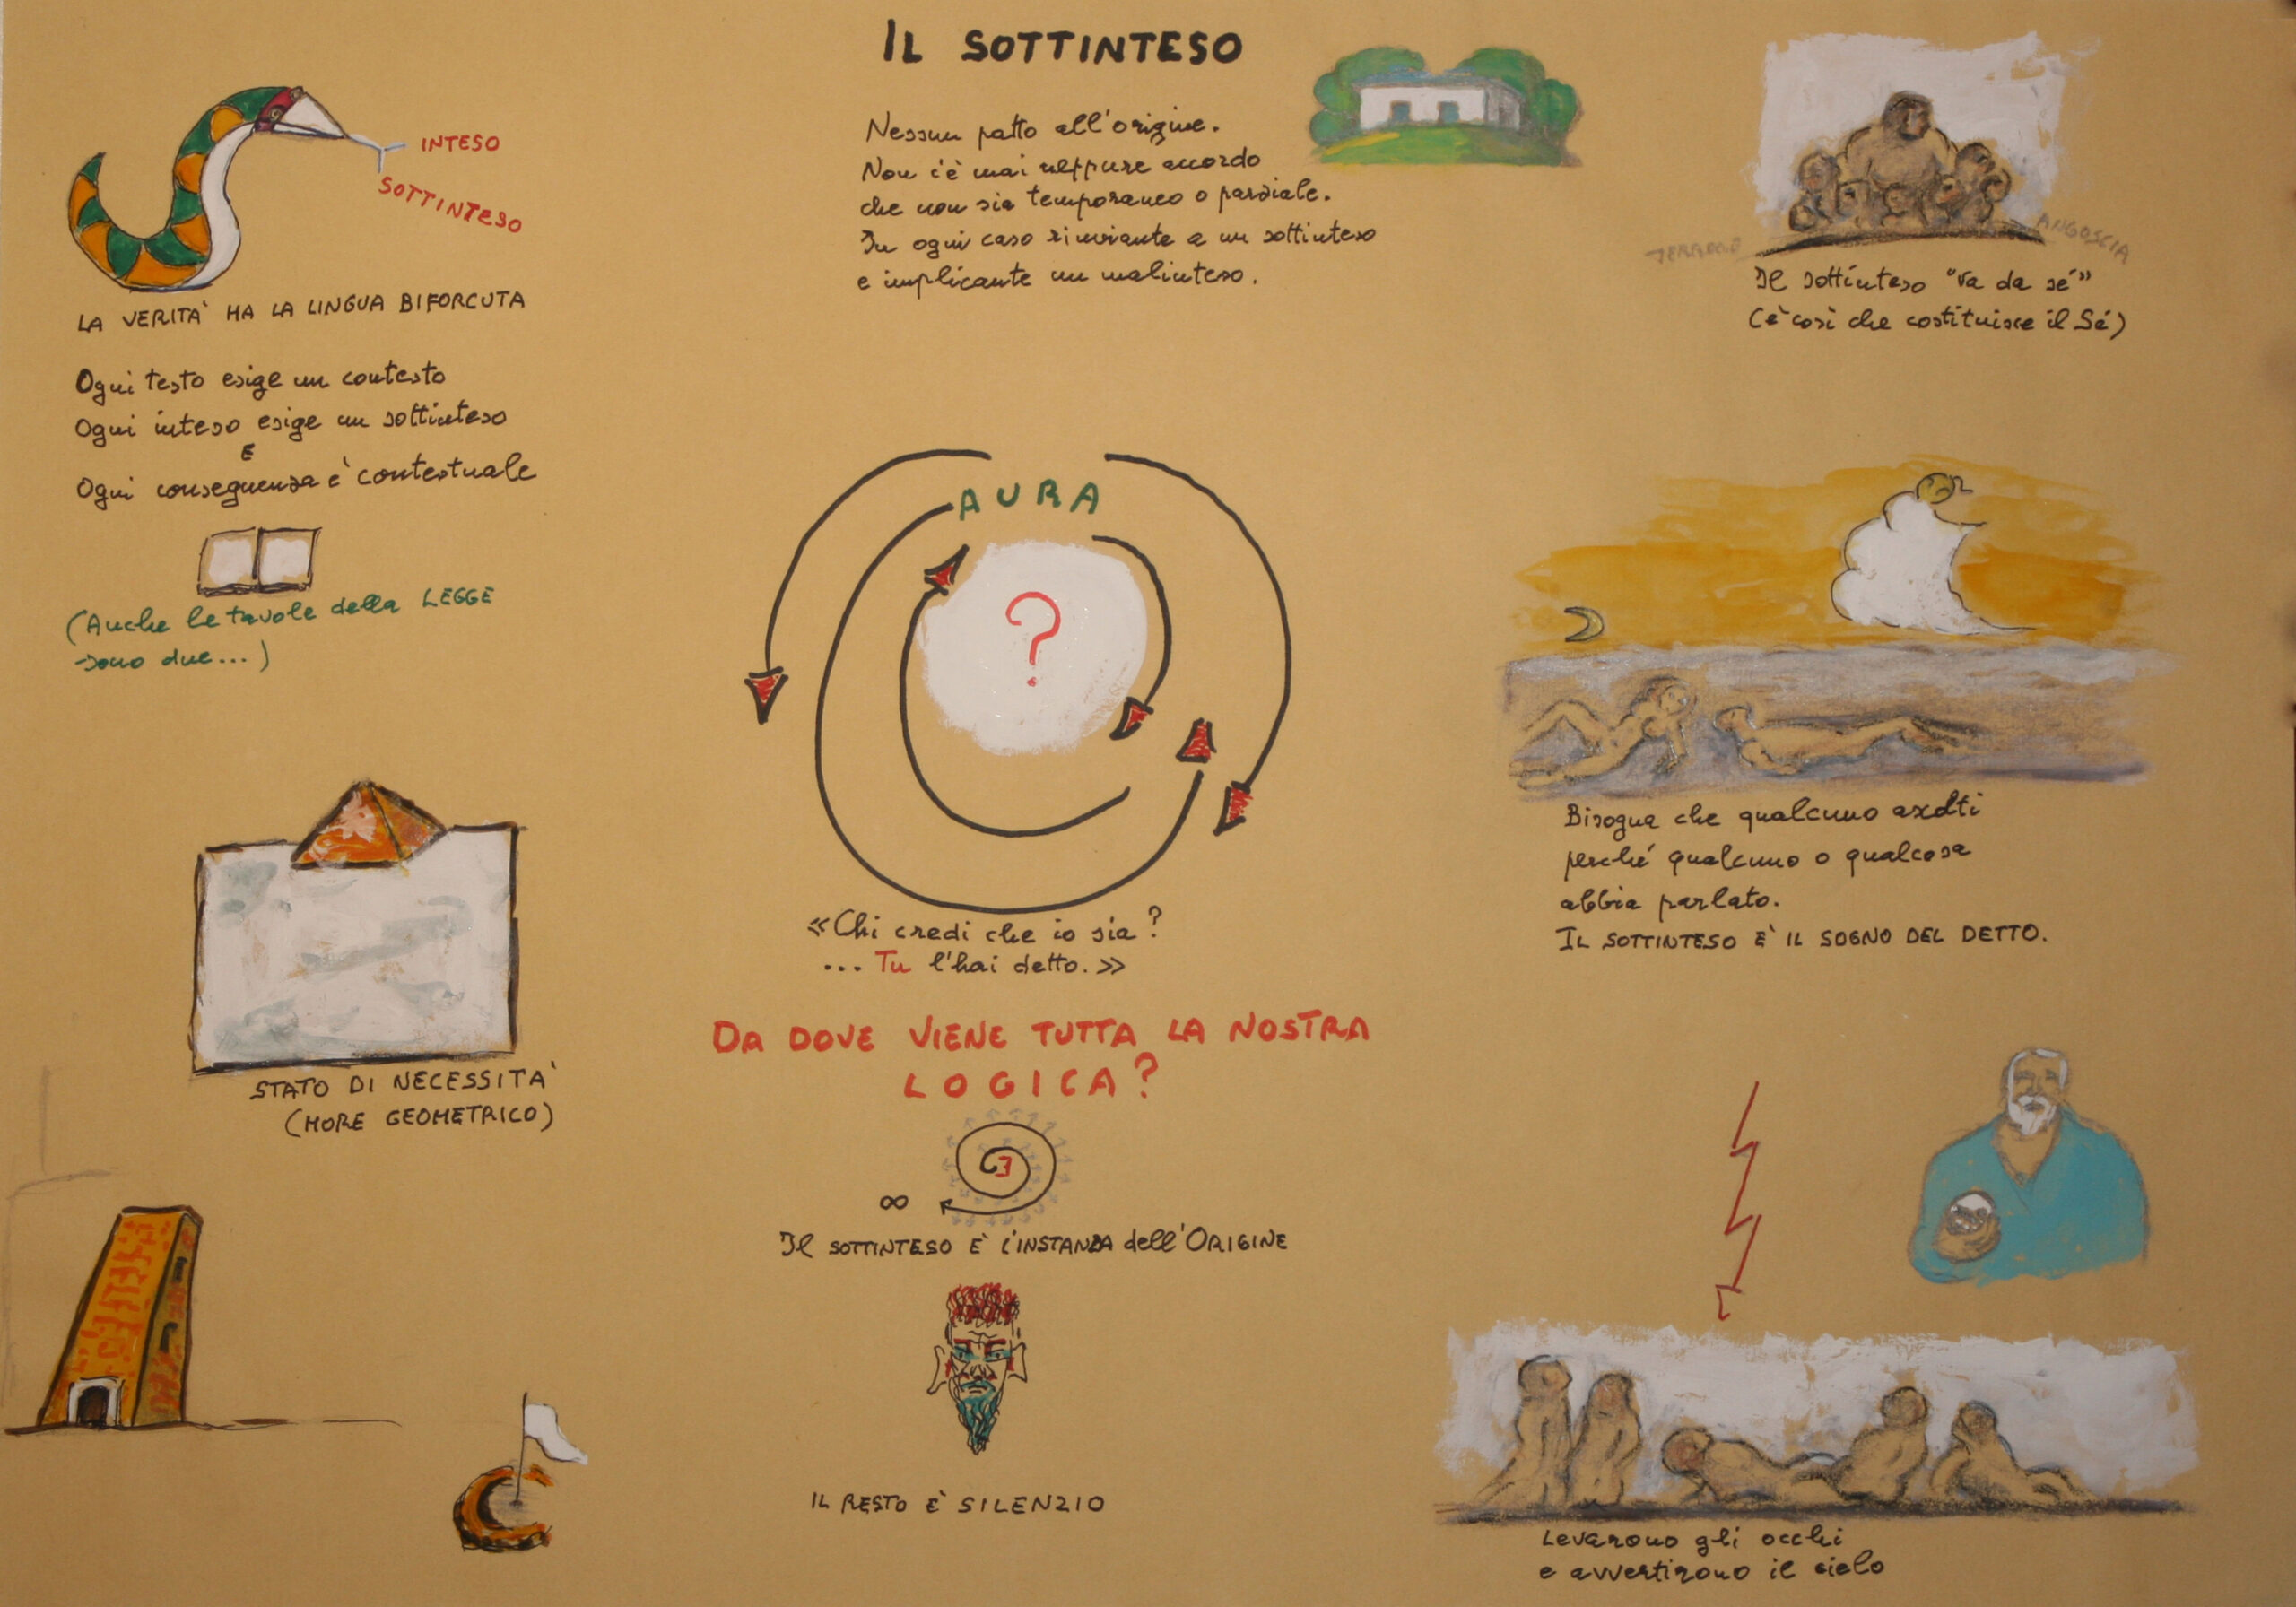 IL SOTTINTESO
INTESO
SOTTINTESO
LA VERITA' HA LA LINGUA BIFORCUTA
Ogni testo esige un contesto
Ogni inteso esige un sottinteso
E
Ogni conseguenza è contestuale
(Anche le tavole della LEGGE
sono due...)
STATO DI NECESSITA'
(MORE GEOMETRICO)
Nessun patto all'origine.
Non c'è mai neppure accordo
che non sia temporaneo o parziale.
In ogni caso rinviante a un sottinteso
e implicante un malinteso.
AURA
?
«Chi credi che io sia?
... Tu l'hai detto.»
DA DOVE VIENE TUTTA LA NOSTRA
LOGICA?
∞
Il SOTTINTESO E' l'INSTANZA dell'ORIGINE
IL RESTO E' SILENZIO
ANGOSCIA
Il sottinteso "va da sé"
(è così che costituisce il Sé)
Bisogna che qualcuno ascolti
perché qualcuno o qualcosa
abbia parlato.
IL SOTTINTESO E' IL SOGNO DEL DETTO.
Levarono gli occhi
e avvertirono il cielo